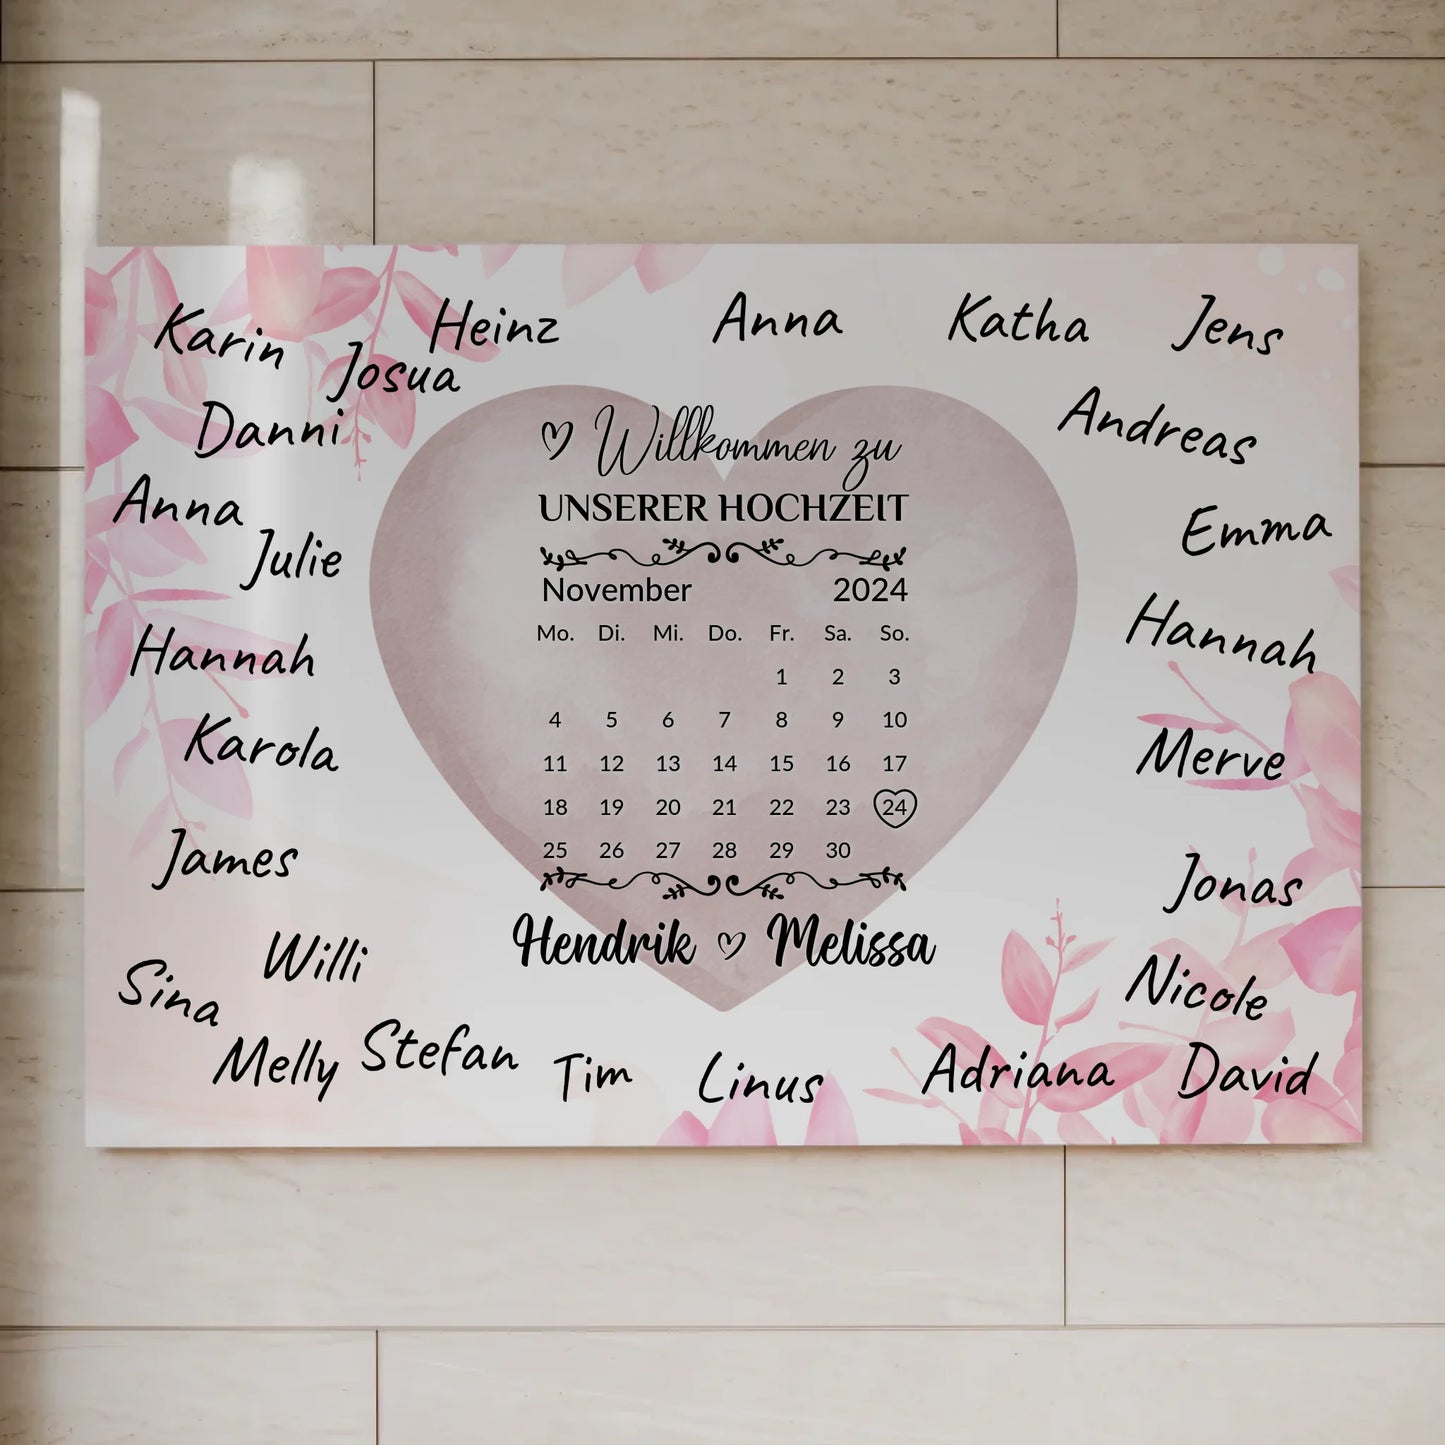 Karin
Heinz
Anna
Katha
Jens
Josua
Danni
Andreas
Anna
Julie
Emma
Hannah
Hannah
Karola
Merve
James
Jonas
Willi
Sina
Nicole
Melly
Stefan
Tim
Linus
Adriana
David
Willkommen zu
UNSERER HOCHZEIT
November 2024
Mo. Di. Mi. Do. Fr. Sa. So.
1 2 3
4 5 6 7 8 9 10
11 12 13 14 15 16 17
18 19 20 21 22 23 24
25 26 27 28 29 30
Hendrik Melissa